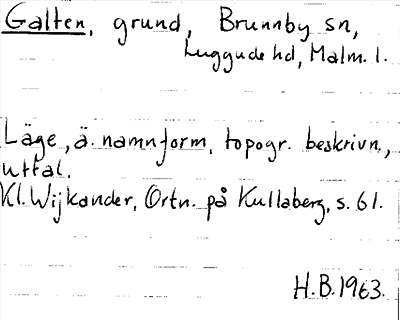 Galten, grund, Brunnby sn,
Luggude hd, Malm. l.
Läge, ä. namnform, topogr. beskrivn.,
uttal.
Kl. Wijkander, Ortn. på Kullaberg, s. 61.
H.B. 1963.